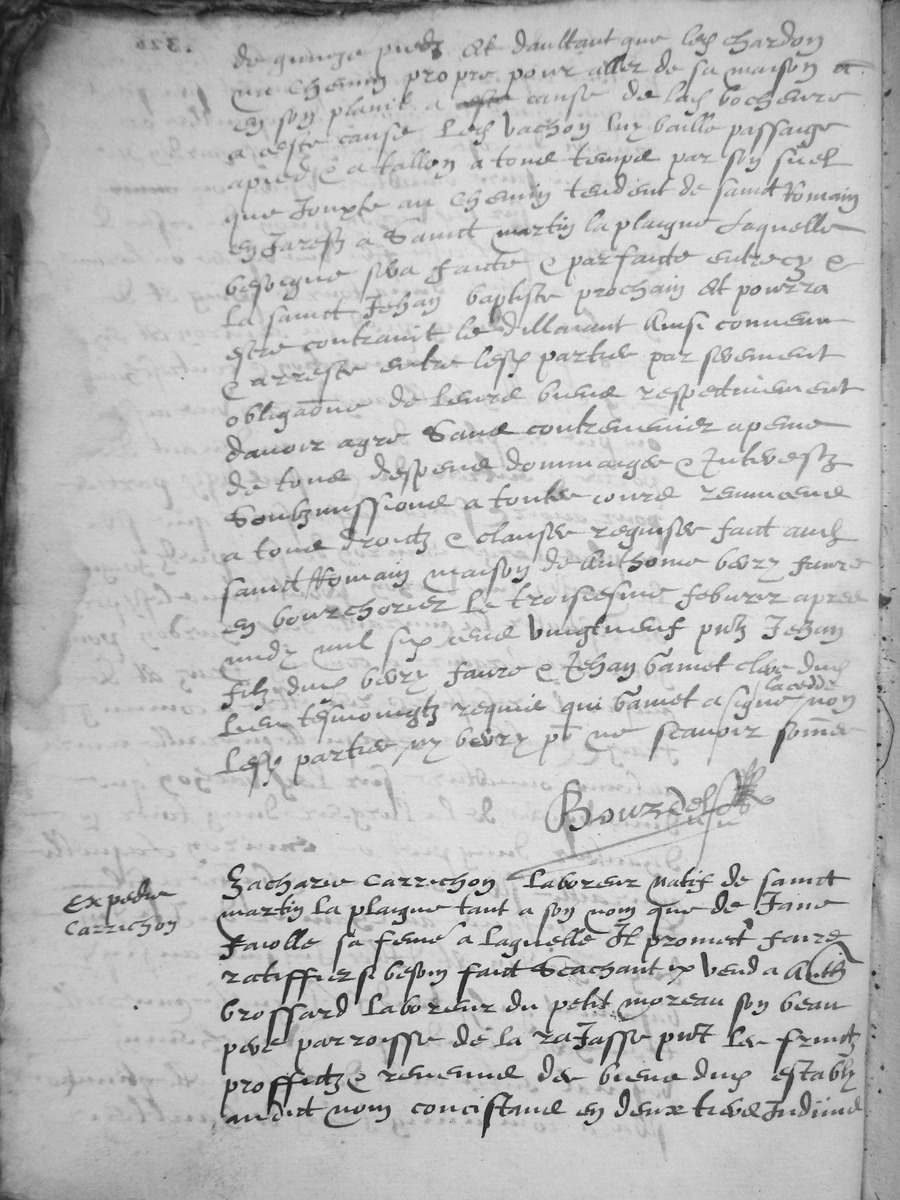 de quinze piedz Et daultant que led chardon
un chemin propre pour aller de sa maison a
en son planil a cause de lad bochoure
a ceste cause led vachon luy baille passaige
apied & a tallon a tous temps par son suel
que Jouxte au chemin tendent de sainct Romain
en Jarestz a Sainct martin la plaigne Laquelle
besoigne sera faicte & parfaicte entrecy &
la sainct Jehan baptiste prochain Et pourra
estre contrainct le dillaiant Ainsi convenu
& arreste entre lesd parties par serement
obligaons de leurs biens respectivement
davoir agre Sans contrevenir a peine
de tous despens dommaiges & Interestz
Soubzmissions a toutes cours renuncens
a tous droictz & clauses requises faict aud
sainct Romain maison de Anthome bevry faure
en bourchorier le troisiesme febvrier apres
midy mil six cens vingtneuf pntz Jehan
filz dud bevry faure & Jehan Gamet clerc dud
lieu tesmoingtz requis qui Gamet a signe la cedde non
lesd parties ny bevry pt ne scavoir sommes
Bourdel
Expedie
Carrichon
Zacharie Carrichon laboreur natif de sainct
martin la plaigne tant a son nom que de Jane
Faiolle sa feme a laquelle Il promet faire
ratiffier si besoin faict Scachant vend a Anth
brossard laboreur du petit moreau son beau
pere parroisse de la raJasse pnt les fruictz
proffictz & revenus des biens dud estably
audict nom concistans en deux terres Indivis